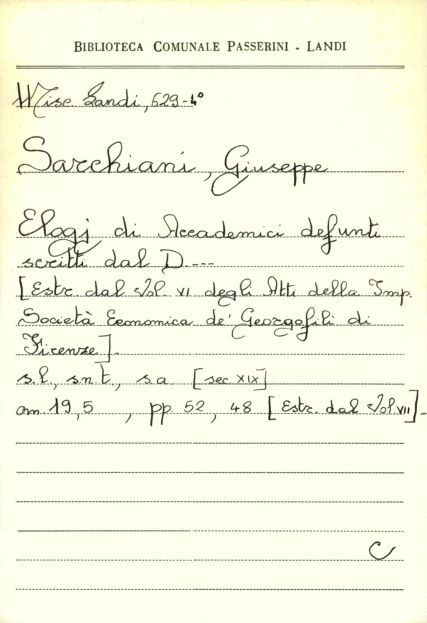 BIBLIOTECA COMUNALE PASSERINI - LANDI
Misc Landi, 629-4°
Sarchiani, Giuseppe
Elogj di Accademici defunti
scritti dal D---
[Estr. dal Vol. VI degli Atti della Imp.
Società Economica de' Georgofili di
Firenze].
s.l., s.n.t., s.a [sec XIX]
cm 19,5 , pp 52, 48 [Estr. dal Vol. VII].
C